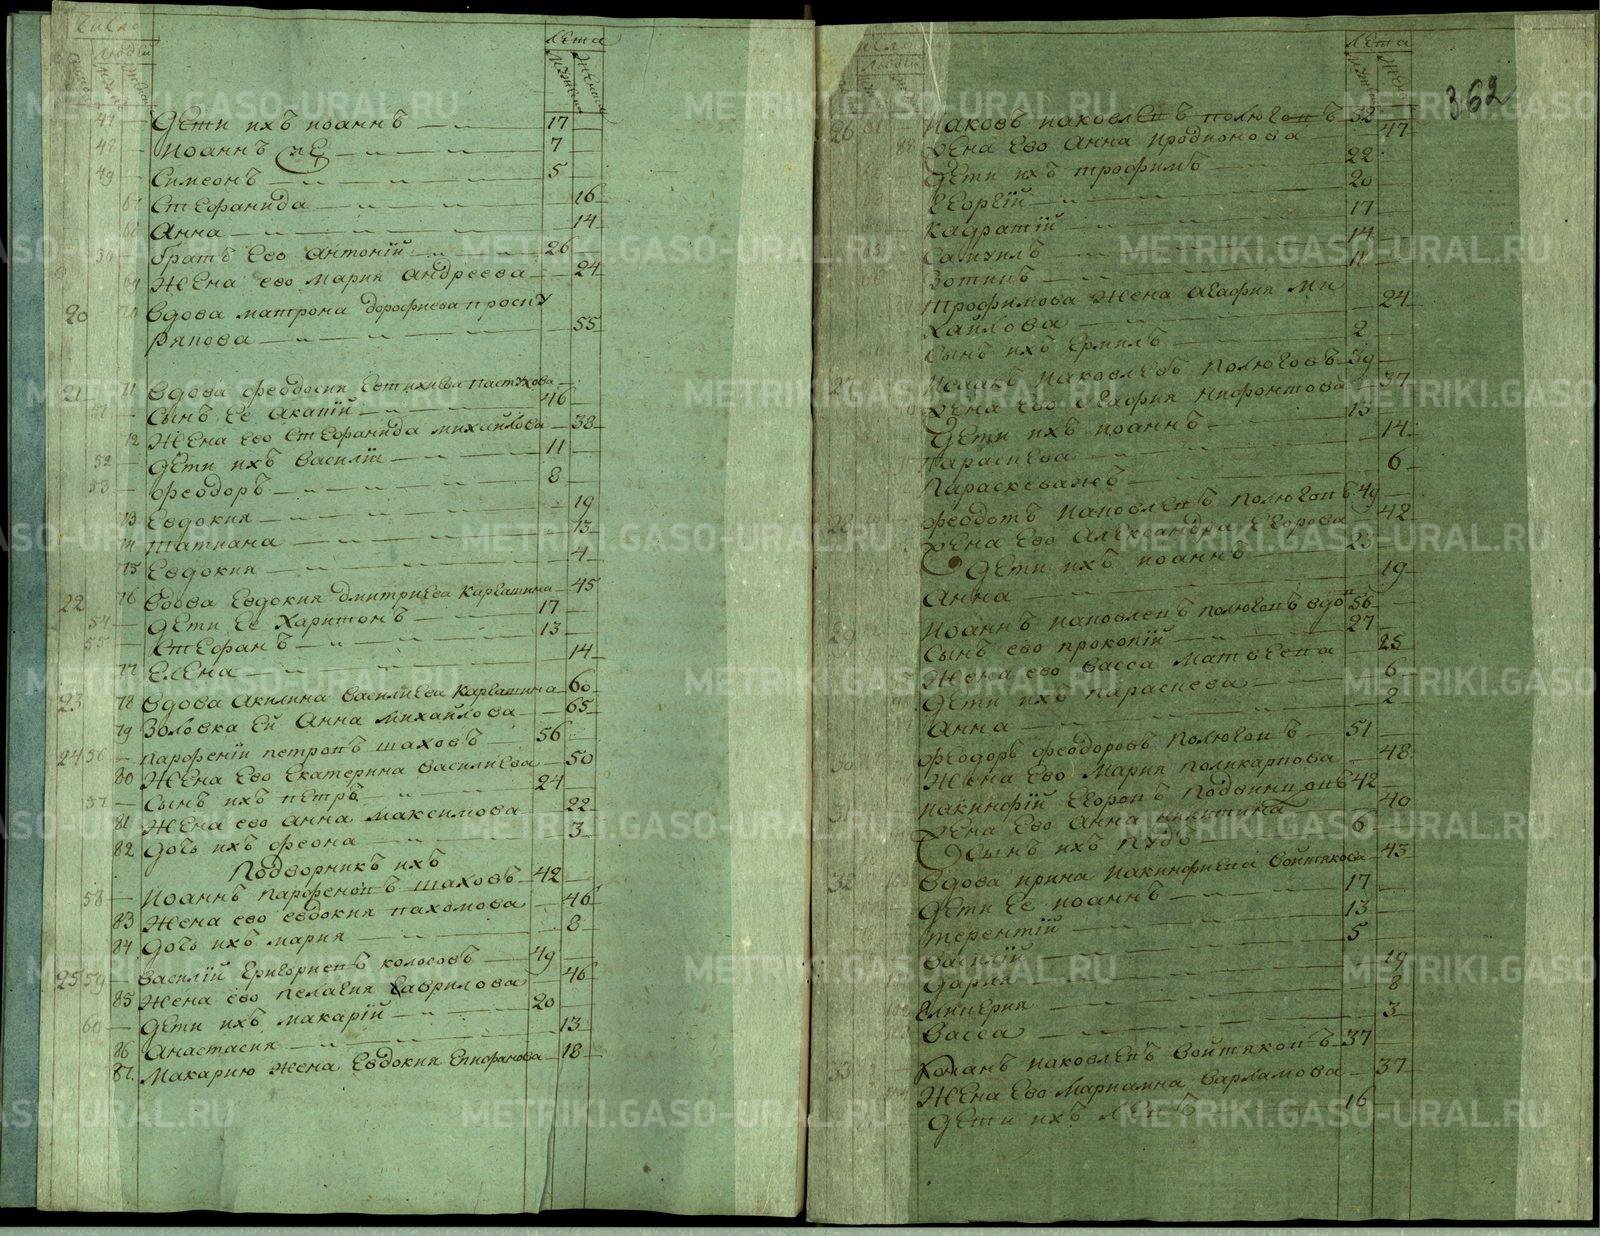 число
людей
лета
мужеска
женска
47 Дети ихъ Иоаннъ 17
48 Иоаннъ же 7
49 Симеонъ 5
67 Стефанида 16
68 Анна 14
50 Братъ Его Антоній 26
69 Жена ево Мария Андреева 24
20 70 Вдова Матрона Дорофиева просву
ряпова 55
21 71 Вдова Феодосия Евтихиева Пастухова
51 Сынъ Ее Акакій 46
72 Жена Его Стефанида Михайлова 38
52 Дети ихъ Василіи 11
53 Феодоръ 8
73 Евдокия 19
74 Татиана 13
75 Евдокия 4
22 76 Вдова Евдокия Дмитриева Каргашина 45
54 Дети Ее Харитонъ 17
55 Стефанъ 13
77 Елена 14
23 78 Вдова Акилина Василиева Каргашина 60
79 Золовка Ей Анна Михайлова 65
24 56 Парфеній Петровъ Шаховъ 56
80 Жена Его Екатерина Василиева 50
57 Сынъ ихъ Петръ 24
81 Жена ево Анна Максимова 22
82 Дочь ихъ Феона 3
Подворникъ ихъ
58 Иоаннъ Парфеновъ Шаховъ 42
83 Жена ево Евдокия Пахомова 46
84 Дочь ихъ Мария 8
25 59 Василій Григориевъ Колосовъ 49
85 Жена ево Пелагия Гаврилова 46
60 Дети ихъ Макарій 20
86 Анастасия 13
87 Макарию жена Евдокия Епифанова 18
362
лета
26 61 Иаковъ Иаковлевъ Полюговъ 52
88 Жена Ево Анна Иродионова 47
Дети ихъ Трофимъ 22
Георгій 20
Кадратій 17
Самуилъ 14
Зотикъ 11
Трофимова жена Агафия Ми
хайлова 24
Сынъ ихъ Ермилъ 2
27 Исаакъ Иаковлевъ Полюговъ 39
Жена Ево Агафия Нифонтова 37
Дети ихъ Иоаннъ 15
Параскева 14
Параскеважъ 6
28 Феодотъ Иаковлевъ Полюговъ 49
Жена Ево Александра Егорова 42
Дети ихъ Иоаннъ 23
Анна 19
29 Иоаннъ Иаковлевъ Полюговъ вдов 56
Сынъ ево Прокопій 27
Жена ево Васса Матвеева 25
Дети ихъ Параскева 6
Анна 2
30 Феодоръ Феодоровъ Полюговъ 51
Жена Ево Мария Поликарпова 48
31 Иакинфій Егоровъ Подвинцовъ 42
Жена Ево Анна Никитина 40
Сынъ ихъ Пудъ 6
32 Вдова Ирина Иакинфиева Войтякова 43
Дети Ее Иоаннъ 17
Терентій 13
Василій 5
Дария 19
Гликерия 8
Васса 3
33 Романъ Иаковлевъ Войтяковъ 37
Жена Ево Мариамна Варламова 37
Дети ихъ 16
METRIKI.GASO-URAL.RU